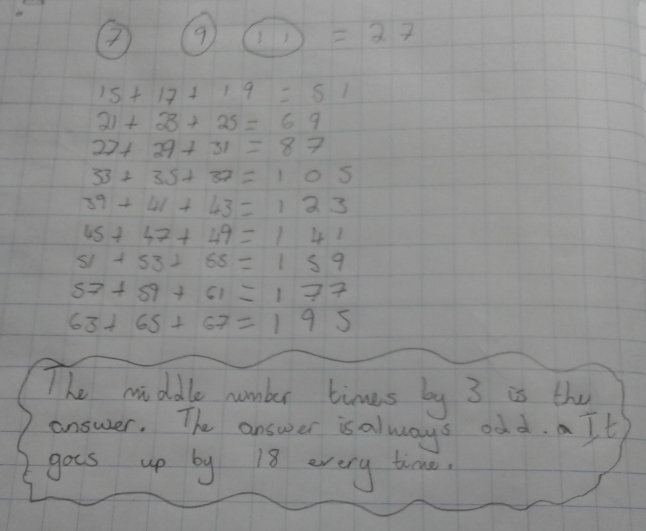 7 9 11 = 27
15 + 17 + 19 = 51
21 + 23 + 25 = 69
27 + 29 + 31 = 87
33 + 35 + 37 = 105
39 + 41 + 43 = 123
45 + 47 + 49 = 141
51 + 53 + 55 = 159
57 + 59 + 61 = 177
63 + 65 + 67 = 195
The middle number times by 3 is the
answer. The answer is always odd. a It
goes up by 18 every time.